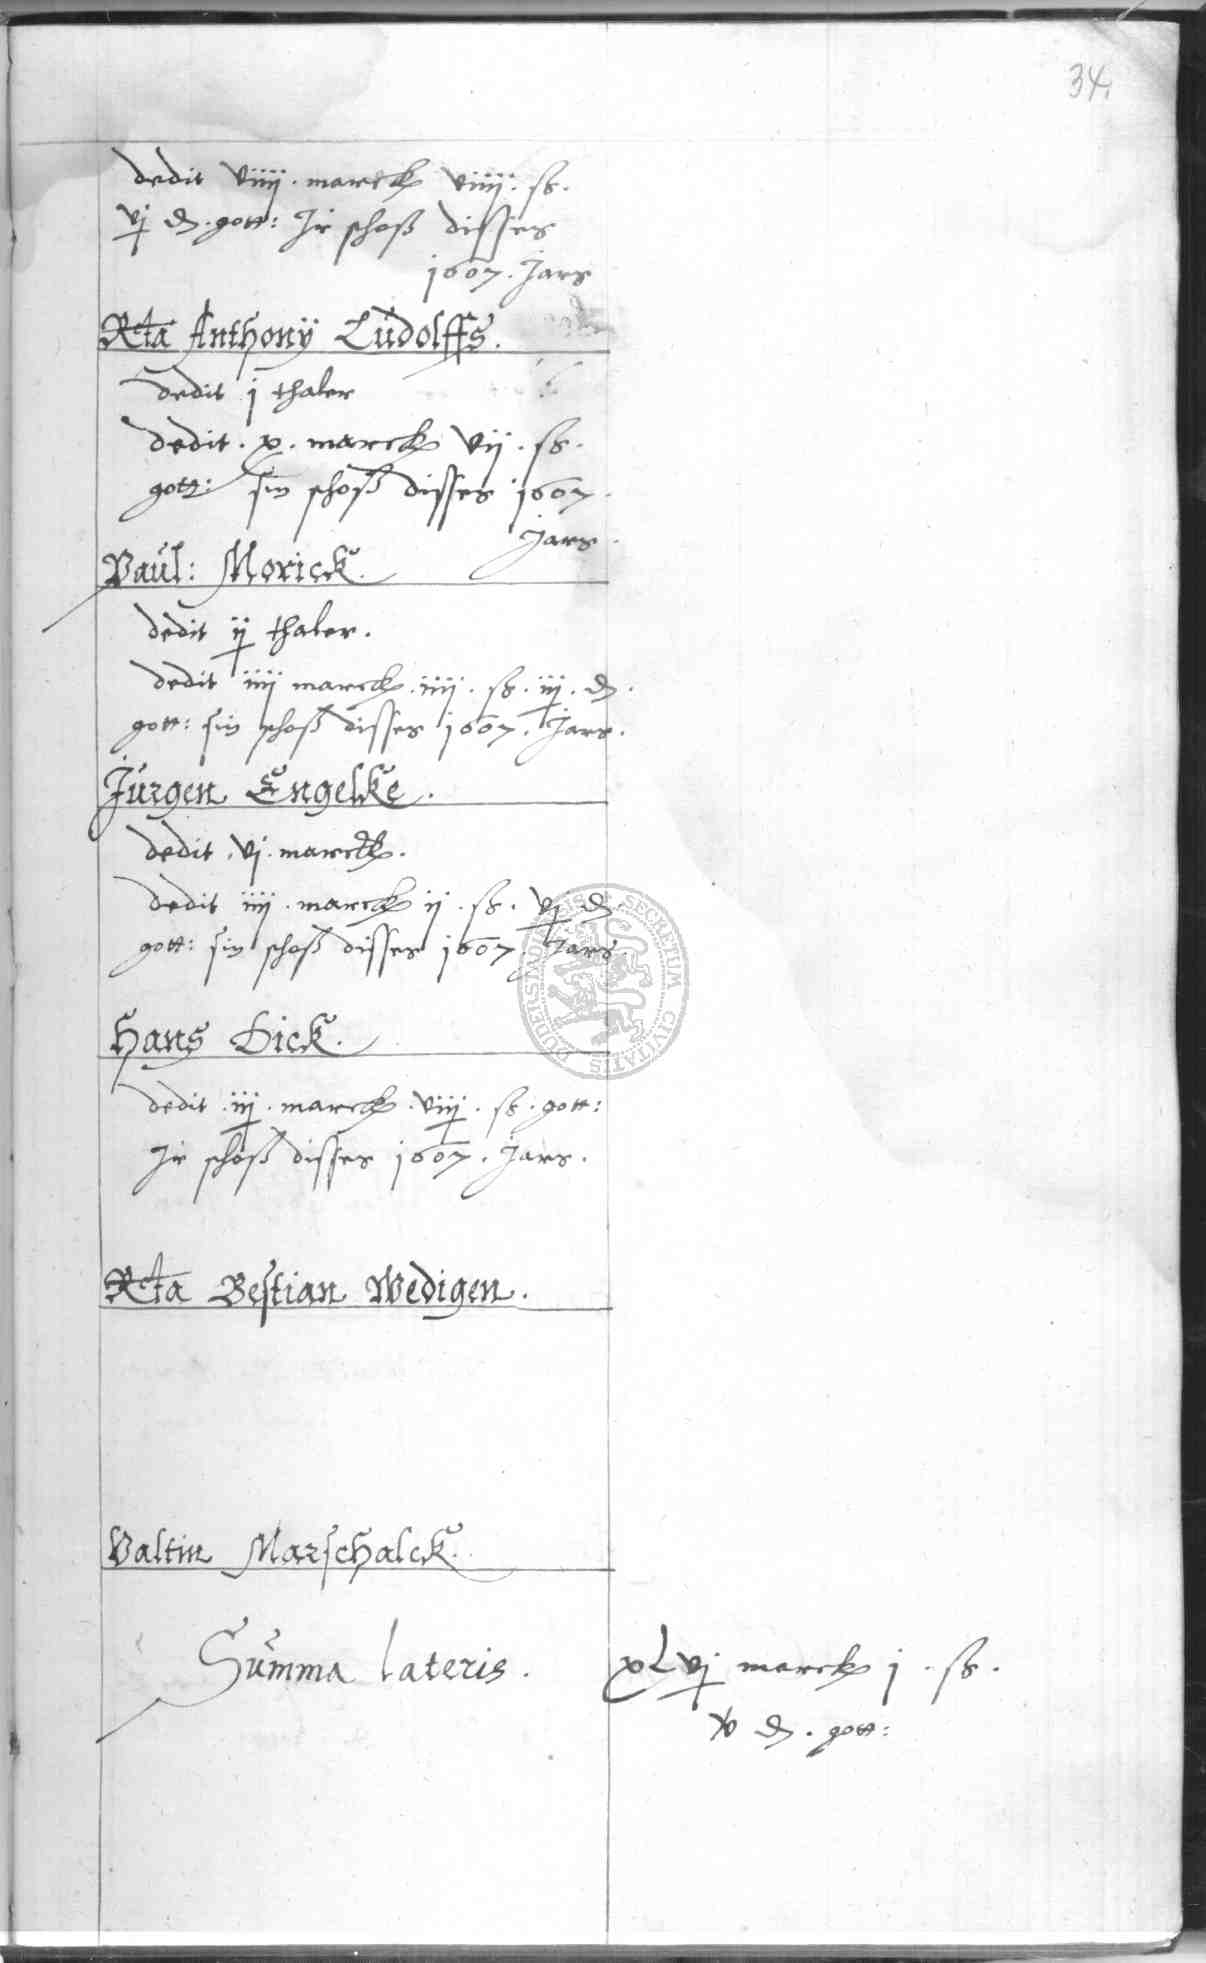 34.
dedit viiij. marck viiij. ß.
vj d. gott: Jr schoß disses
1607. Jars
Rcta Anthonÿ Ludolffs.
dedit j thaler
dedit. x. marck vij. ß.
gott: sin schoß disses 1607.
Jars.
Paul: Morick.
dedit ij thaler.
dedit iiij marck. iiij. ß. iij. d.
gott: sin schoß disses 1607. Jars.
Jürgen Engelke.
dedit. vj. marck.
dedit iiij. marck ij. ß. vj d
gott: sin schoß disses 1607. Jars.
Hans Dick.
dedit. iij. marck. viiij. ß. gott:
Jr schoß disses 1607. Jars.
Rcta Bestian Wedigen.
Valtin Marschalck.
Summa lateris. xLvj marck j. ß.
d. gott:
SECRETUM CIVITATIS QUDERSTADIENSIS